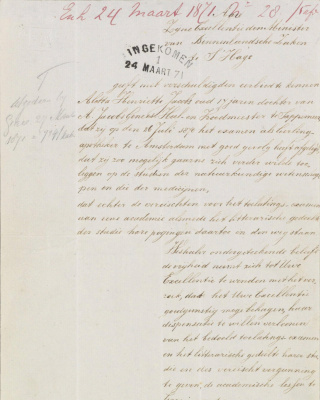 Exh 24 Maart 1871. No 28
Zijne Excellentie den Minister
van Binnenlandsche Zaken
te 's Hage
INGEKOMEN
1
24 MAART 71
geeft met verschuldigden eerbied te kennen
Aletta Henriette Jacobs oud 17 jaren dochter van
A. Jacobs Genees Heel en Vroedmeester te Sappemeer
dat zij den 16 Julij 1870 het examen als leerling
apotheker te Amsterdam met goed gevolg heeft afgelegd
dat zij zoo mogelijk gaarne zich verder wilde toe-
leggen op de studien der natuurkundige wetenschap-
pen en die der medicijnen,
dat echter de vereischten voor het toelatings examen
aan eene academie alsmede het litterarische gedeelte
der studie hare pogingen daartoe in den weg staan
Weshalve ondergeteekende beleefd
de vrijheid neemt zich tot Uwe
Excellentie te wenden met het ver-
zoek, dat het Uwe Excellentie
goedgunstig moge behagen, haar
dispensatie te willen verleenen
van het bedoeld toelatings examen
en het litterarische gedeelte harer stu-
die en dus verzoekt vergunning
te geven, de academische lessen te